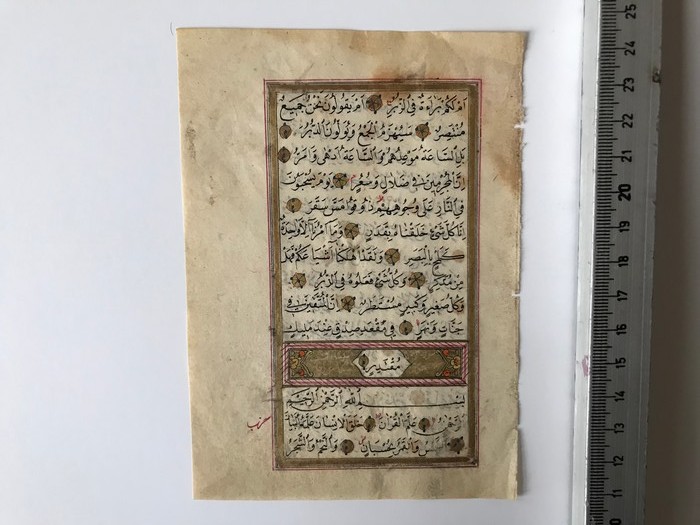 اَمْ لَكُمْ بَرَاءَةٌ فِي الزُّبُرِ اَمْ يَقُولُونَ نَحْنُ جَمِيعٌ
مُنْتَصِرٌ سَيُهْزَمُ الْجَمْعُ وَيُوَلُّونَ الدُّبُرَ
بَلِ السَّاعَةُ مَوْعِدُهُمْ وَالسَّاعَةُ اَدْهٰى وَاَمَرُّ
اِنَّ الْمُجْرِمِينَ فِي ضَلَالٍ وَسُعُرٍ يَوْمَ يُسْحَبُونَ
فِي النَّارِ عَلٰى وُجُوهِهِمْ ذُوقُوا مَسَّ سَقَرَ
اِنَّا كُلَّ شَيْءٍ خَلَقْنَاهُ بِقَدَرٍ وَمَا اَمْرُنَا اِلَّا وَاحِدَةٌ
كَلَمْحٍ بِالْبَصَرِ وَلَقَدْ اَهْلَكْنَا اَشْيَاعَكُمْ فَهَلْ
مِنْ مُدَّكِرٍ وَكُلُّ شَيْءٍ فَعَلُوهُ فِي الزُّبُرِ
وَكُلُّ صَغِيرٍ وَكَبِيرٍ مُسْتَطَرٌ اِنَّ الْمُتَّقِينَ فِي
جَنَّاتٍ وَنَهَرٍ فِي مَقْعَدِ صِدْقٍ عِنْدَ مَلِيكٍ
مُقْتَدِرٍ
بِسْمِ اللّٰهِ الرَّحْمٰنِ الرَّحِيمِ
اَلرَّحْمٰنُ عَلَّمَ الْقُرْاٰنَ خَلَقَ الْاِنْسَانَ عَلَّمَهُ الْبَيَانَ
حزب
اَلشَّمْسُ وَالْقَمَرُ بِحُسْبَانٍ وَالنَّجْمُ وَالشَّجَرُ
25
24
23
22
21
20
19
18
17
16
15
14
13
12
11
10